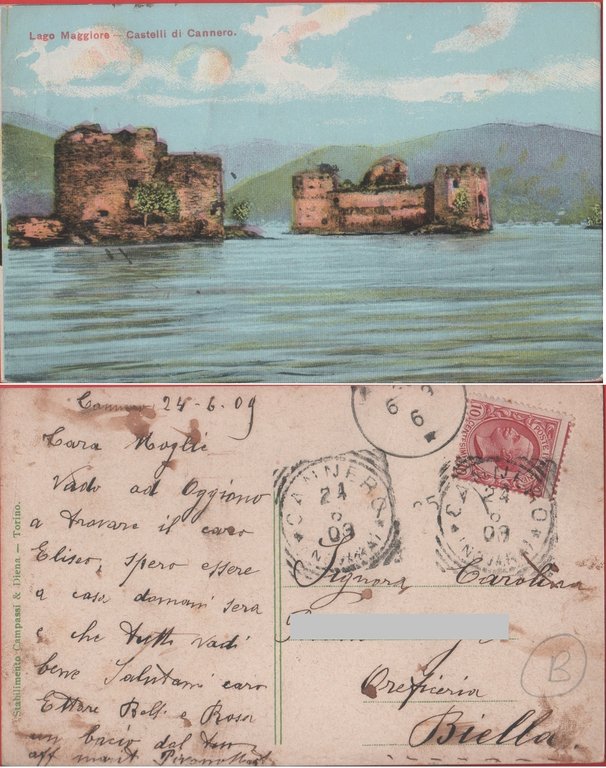 Lago Maggiore – Castelli di Cannero.
Cannero 24-6-09
Cara Moglie
Vado ad Oggiono
a trovare il caro
Eliseo, spero essere
a casa domani sera
e che tutti vadi
bene Salutami caro
Ettore e Rosa
un bacio dal tuo
aff marit
Stabilimento Campassi & Diena – Torino.
6 6
CANNERO
24
6
09
10 CENTESIMI
CANNERO
24
6
09
Signora Carolina
Oreficeria
Biella
B